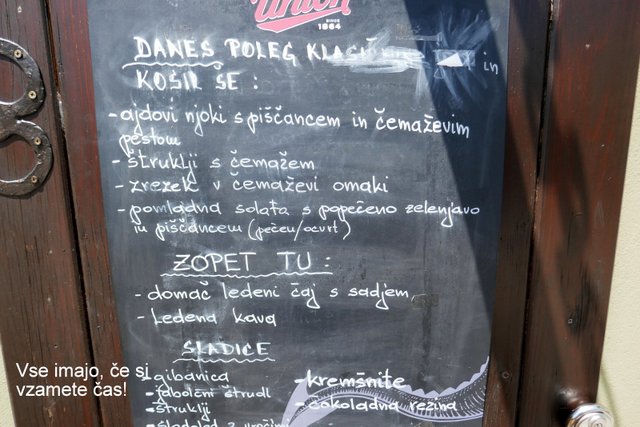 Union
SINCE
1864
DANES POLEG in
KOSIL ŠE :
- ajdovi njoki s piščancem in čemaževim
pestom
- štruklji s čemažem
- zrezek v čemaževi omaki
- pomladna solata s popečeno zelenjavo
in piščancem (pečen/ocvrt)
ZOPET TU :
- domač ledeni čaj s sadjem
- Ledena kava
SLADICE
- gibanica
- jabolčni štrudl
- štruklji
- sladoled z
- kremšnite
- čokoladna rezina
Vse imajo, če si
vzamete čas!